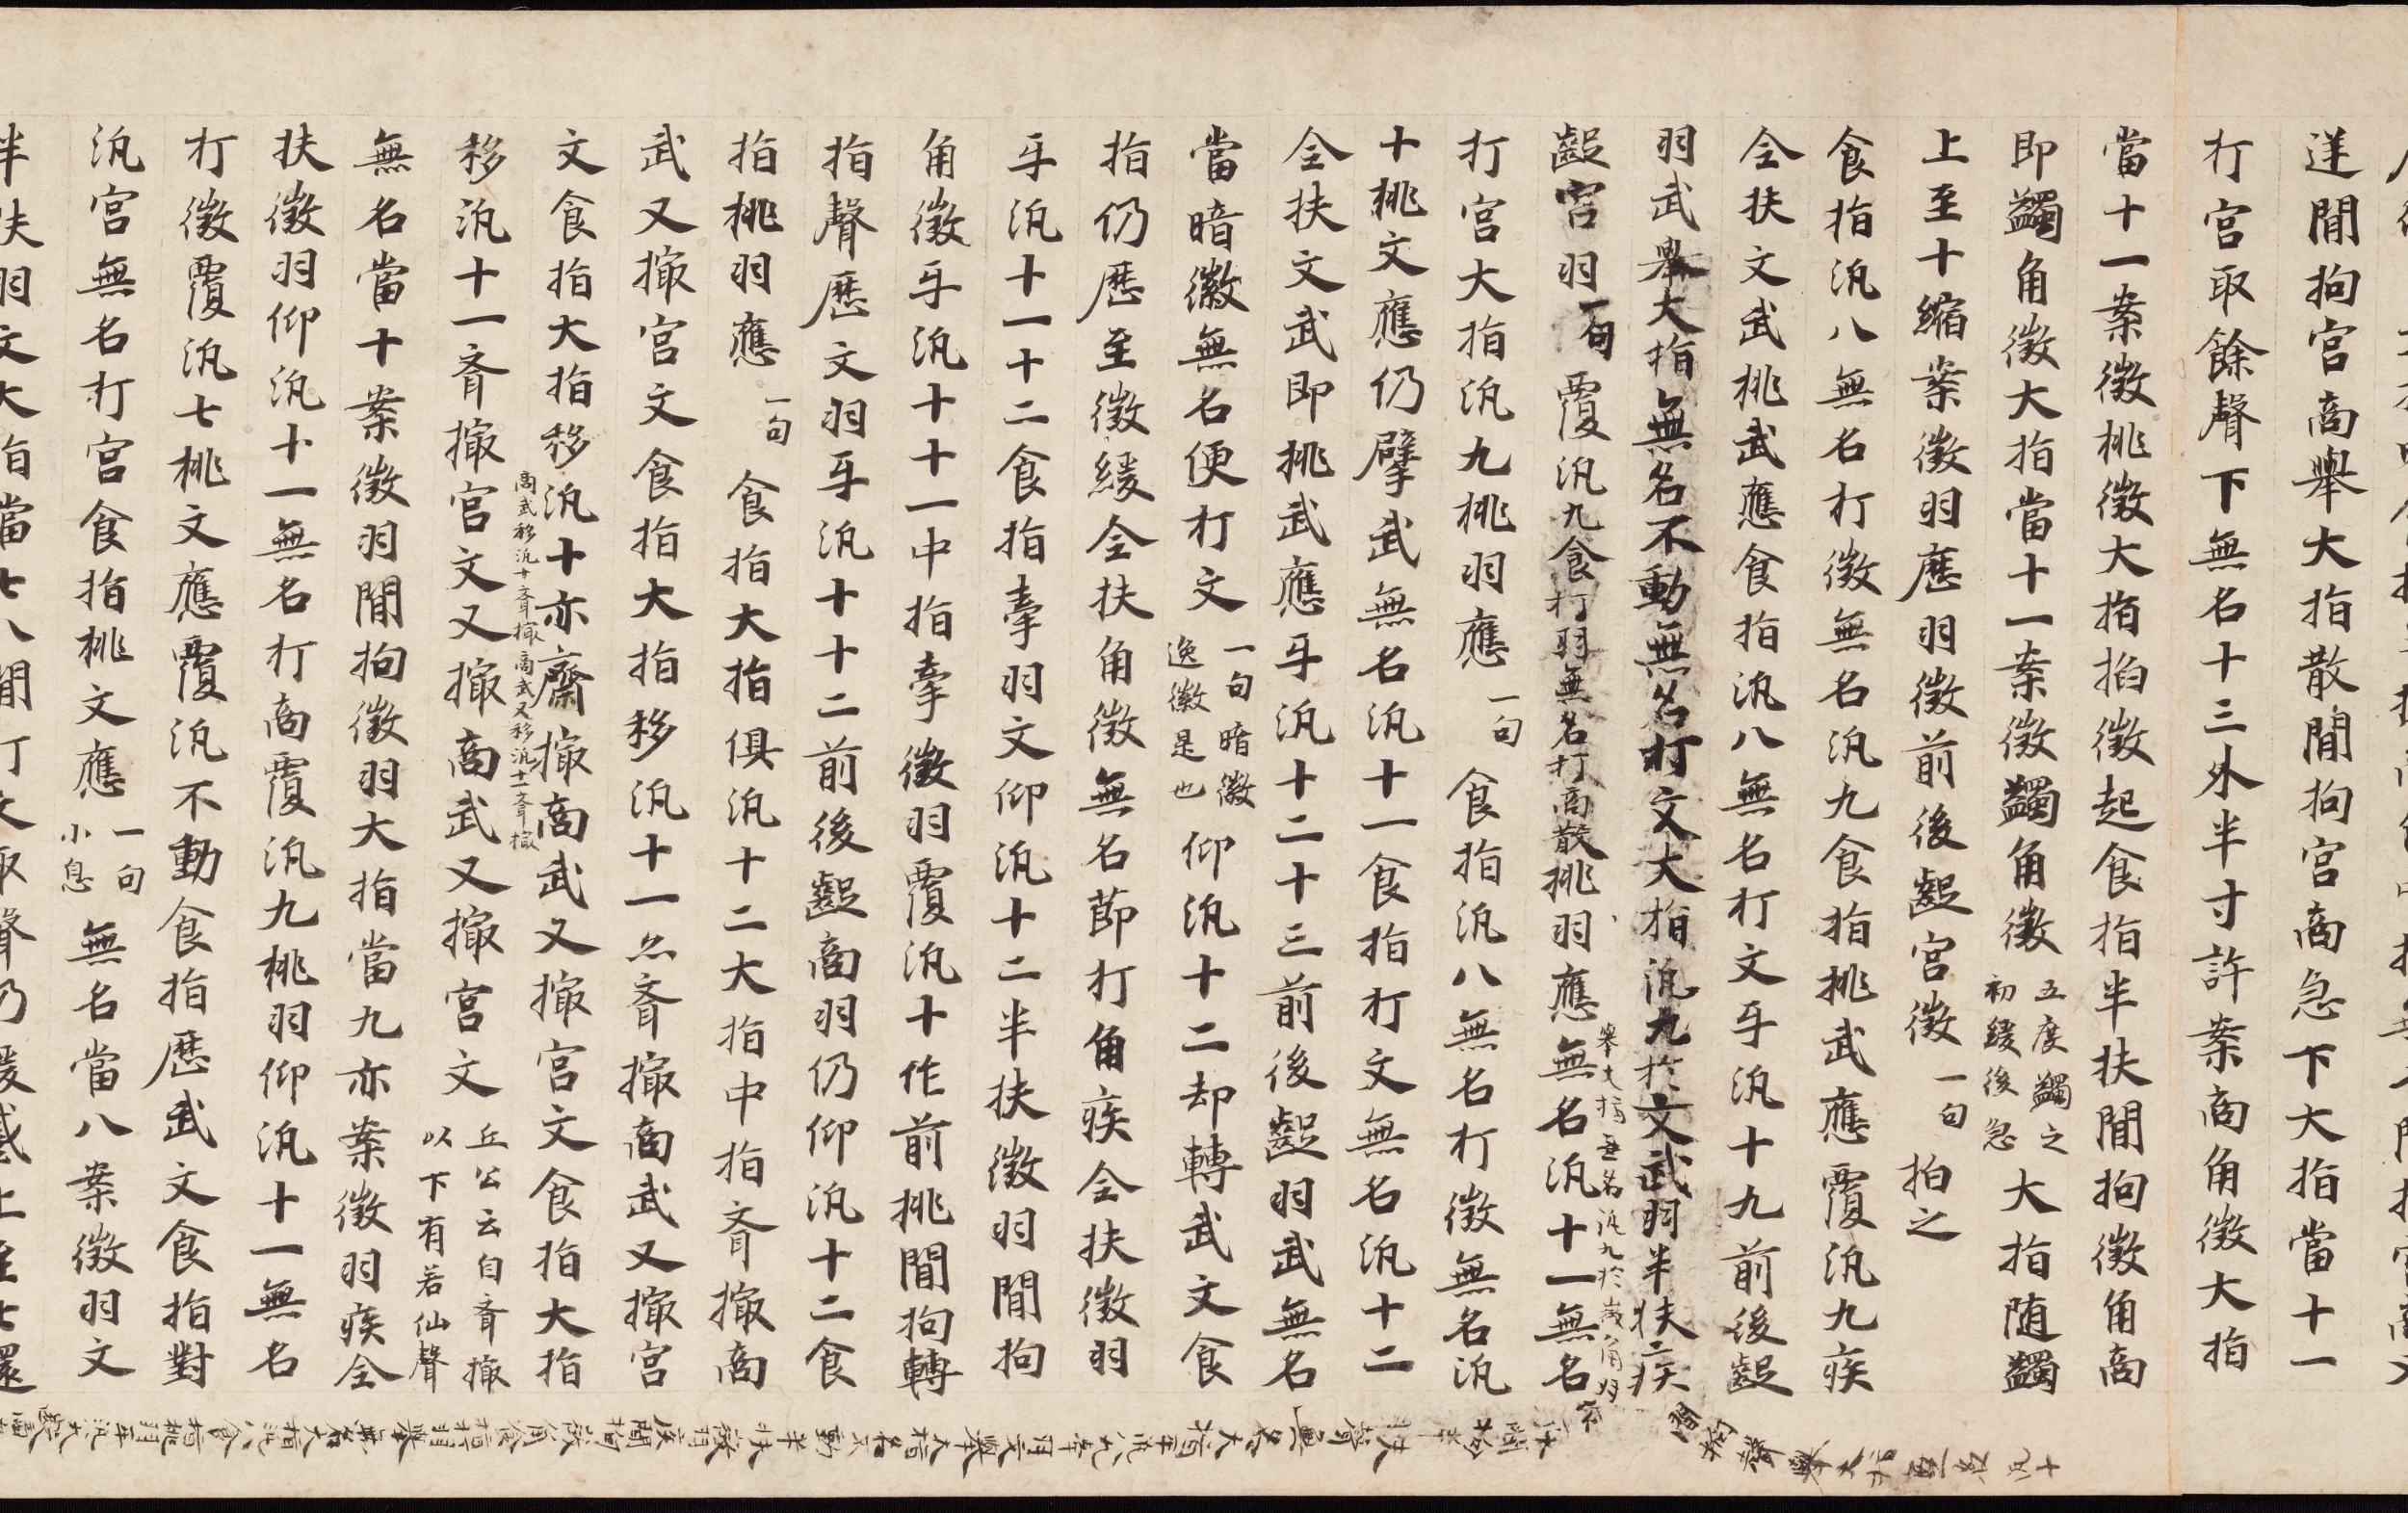 逆間拘宮商舉大指散間拘宮商急下大指當十一
打宮取餘聲下無名十三外半寸許案商角徵大指
當十一案徵桃徵大指掐徵起食指半扶間拘徵角商
即蠲角徵大指當十一案徵蠲角徵
五度蠲之
初緩後急
大指随蠲
上至十縮案徵羽應羽徵前後齪宮徵
一句
拍之
食指汎八無名打徵無名汎九食指桃武應覆汎九疾
全扶文武桃武應食指汎八無名打文牙汎十九前後齪
羽武舉大指無名不動無名打文大指汎九於文武羽半扶二疾
齪宮羽
一句
覆汎九食打羽無名打商散桃羽應無名汎十一無名
打宮大指汎九桃羽應
一句
食指汎八無名打徵無名汎
十桃文應仍擘武無名汎十一食指打文無名汎十二
全扶文武即桃武應牙汎十二十三前後齪羽武無名
當暗徽無名便打文
一句暗徽
逸徽是也
仰汎十二却轉武文食
指仍歷至徵緩全扶角徵無名節打角疾全扶徵羽
牙汎十一十二食指牽羽文仰汎十二半扶徵羽間拘
角徵牙汎十十一中指牽徵羽覆汎十作前桃間拘轉
指聲歷文羽牙汎十十二前後齪商羽仍仰汎十二食
指桃羽應
一句
食指大指俱汎十二大指中指齊撮商
武又撮宮文食指大指移汎十一亦齊撮商武又撮宮
文食指大指移汎十亦齊撮商武又撮宮文食指大指
商武移汎十齊撮商武又移汎十一齊撮
移汎十一齊撮宮文又撮商武又撮宮文
丘公云自齊撮
以下有若仙聲
無名當十案徵羽間拘徵羽大指當九亦案徵羽疾全
扶徵羽仰汎十一無名打商覆汎九桃羽仰汎十一無名
打徵覆汎七桃文應覆汎不動食指歷武文食指對
汎宮無名打宮食指桃文應
一句
小息
無名當八案徵羽文
半扶羽文大指當七八間打文取聲仍緩感上至七還